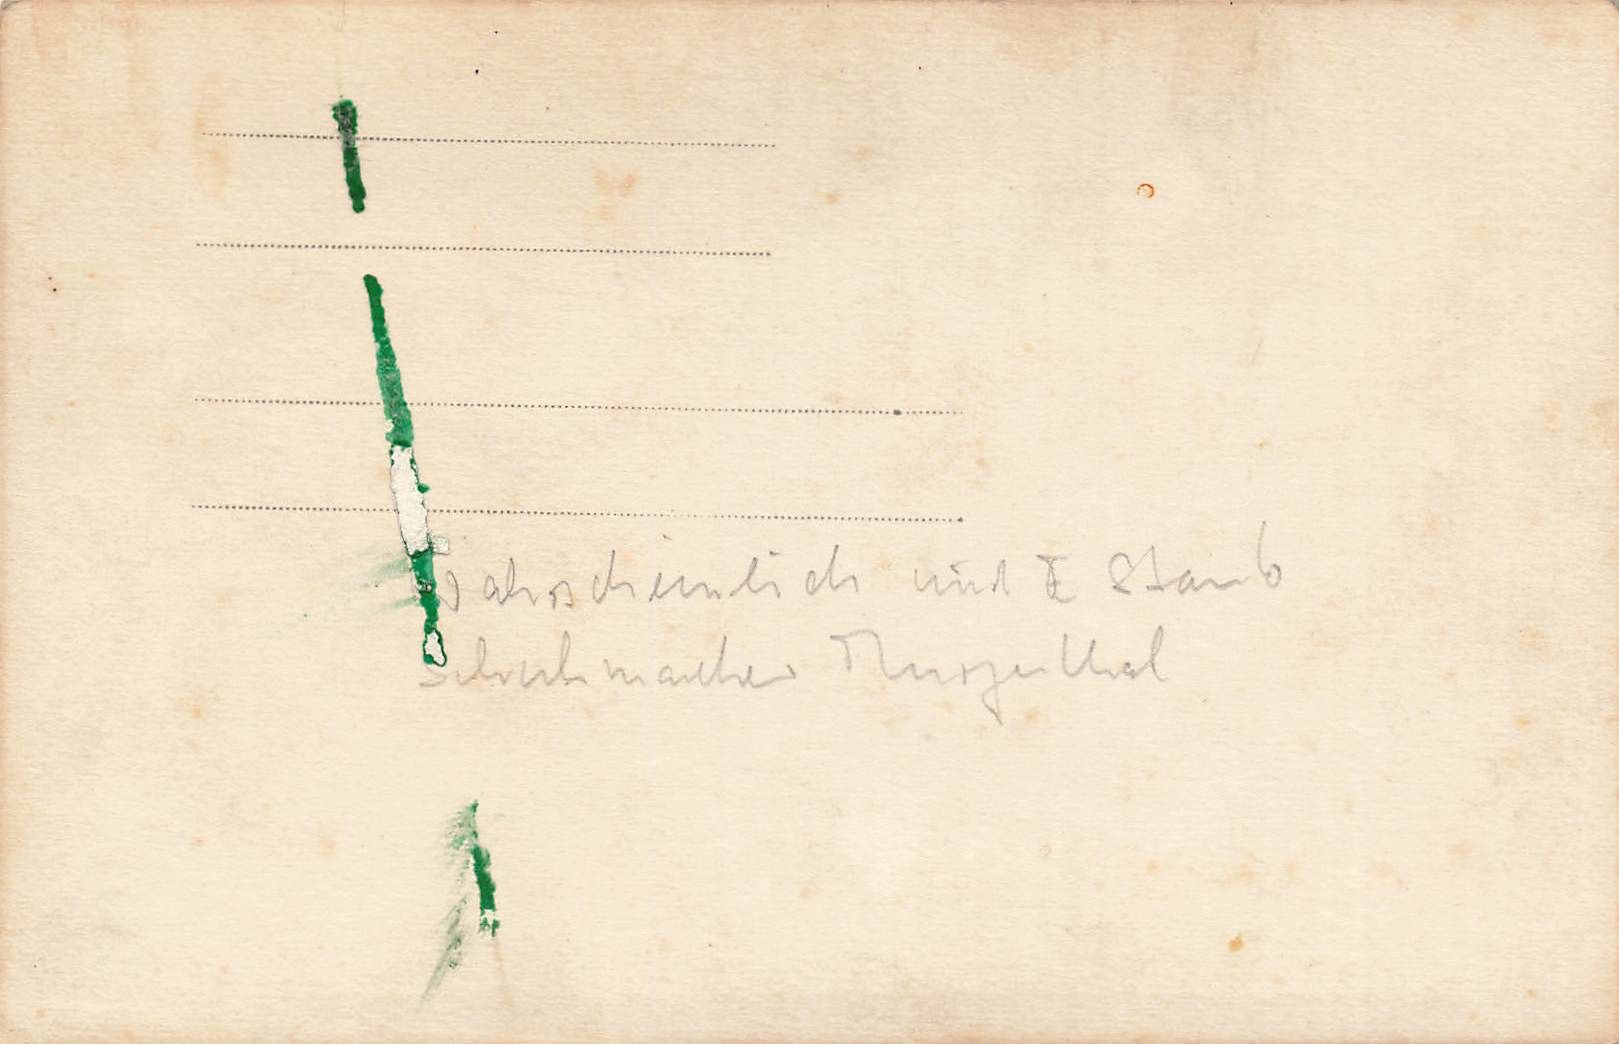 Wahrscheinlich Staub
Schuhmacher Murgenthal